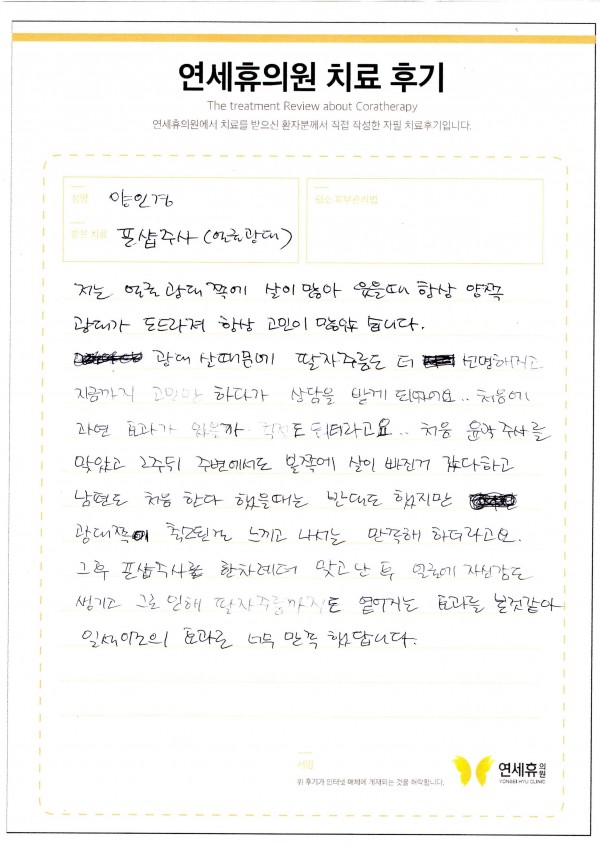 연세휴의원 치료 후기
The treatment Review about Coratherapy
연세휴의원에서 치료를 받으신 환자분께서 직접 작성한 자필 치료후기입니다.
성명 양인경
받은 치료 프샵주사 (얼굴광대)
평소 피부관리법
저는 얼굴 광대 쪽에 살이 많아 웃을때 항상 양쪽
광대가 도드라져 항상 고민이 많았습니다.
광대 살때문에 팔자주름도 더 선명해지고
지금까지 고민만 하다가 상담을 받게 되었어요.. 처음에
과연 효과가 있을까 걱정도 되더라고요.. 처음 윤곽주사를
맞았고 2주뒤 주변에서도 볼쪽에 살이 빠진거 같다하고
남편도 처음 한다 했을때는 반대도 했지만
광대쪽이 축소된걸 느끼고 나서는 만족해 하더라고요.
그후 프샵주사를 한차례더 맞고 난 후 얼굴에 자신감도
생기고 그로인해 팔자주름까지도 옅어지는 효과를 본것같아
일석이조의 효과로 너무 만족 했답니다.
서명
위 후기가 인터넷 매체에 게재되는 것을 허락합니다.
연세휴의원
YONSEI HYU CLINIC